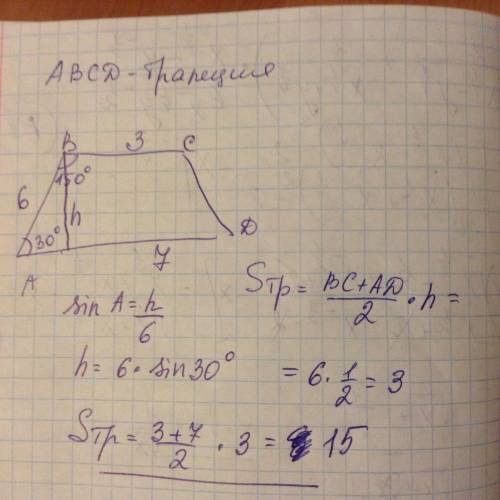 ABCD - трапеция
B 3 C
150°
6 h
30° D
A 7
Sтр = BC+AD/2 · h =
sin A = h/6
h = 6 · sin 30° = 6 · 1/2 = 3
Sтр = 3+7/2 · 3 = 15